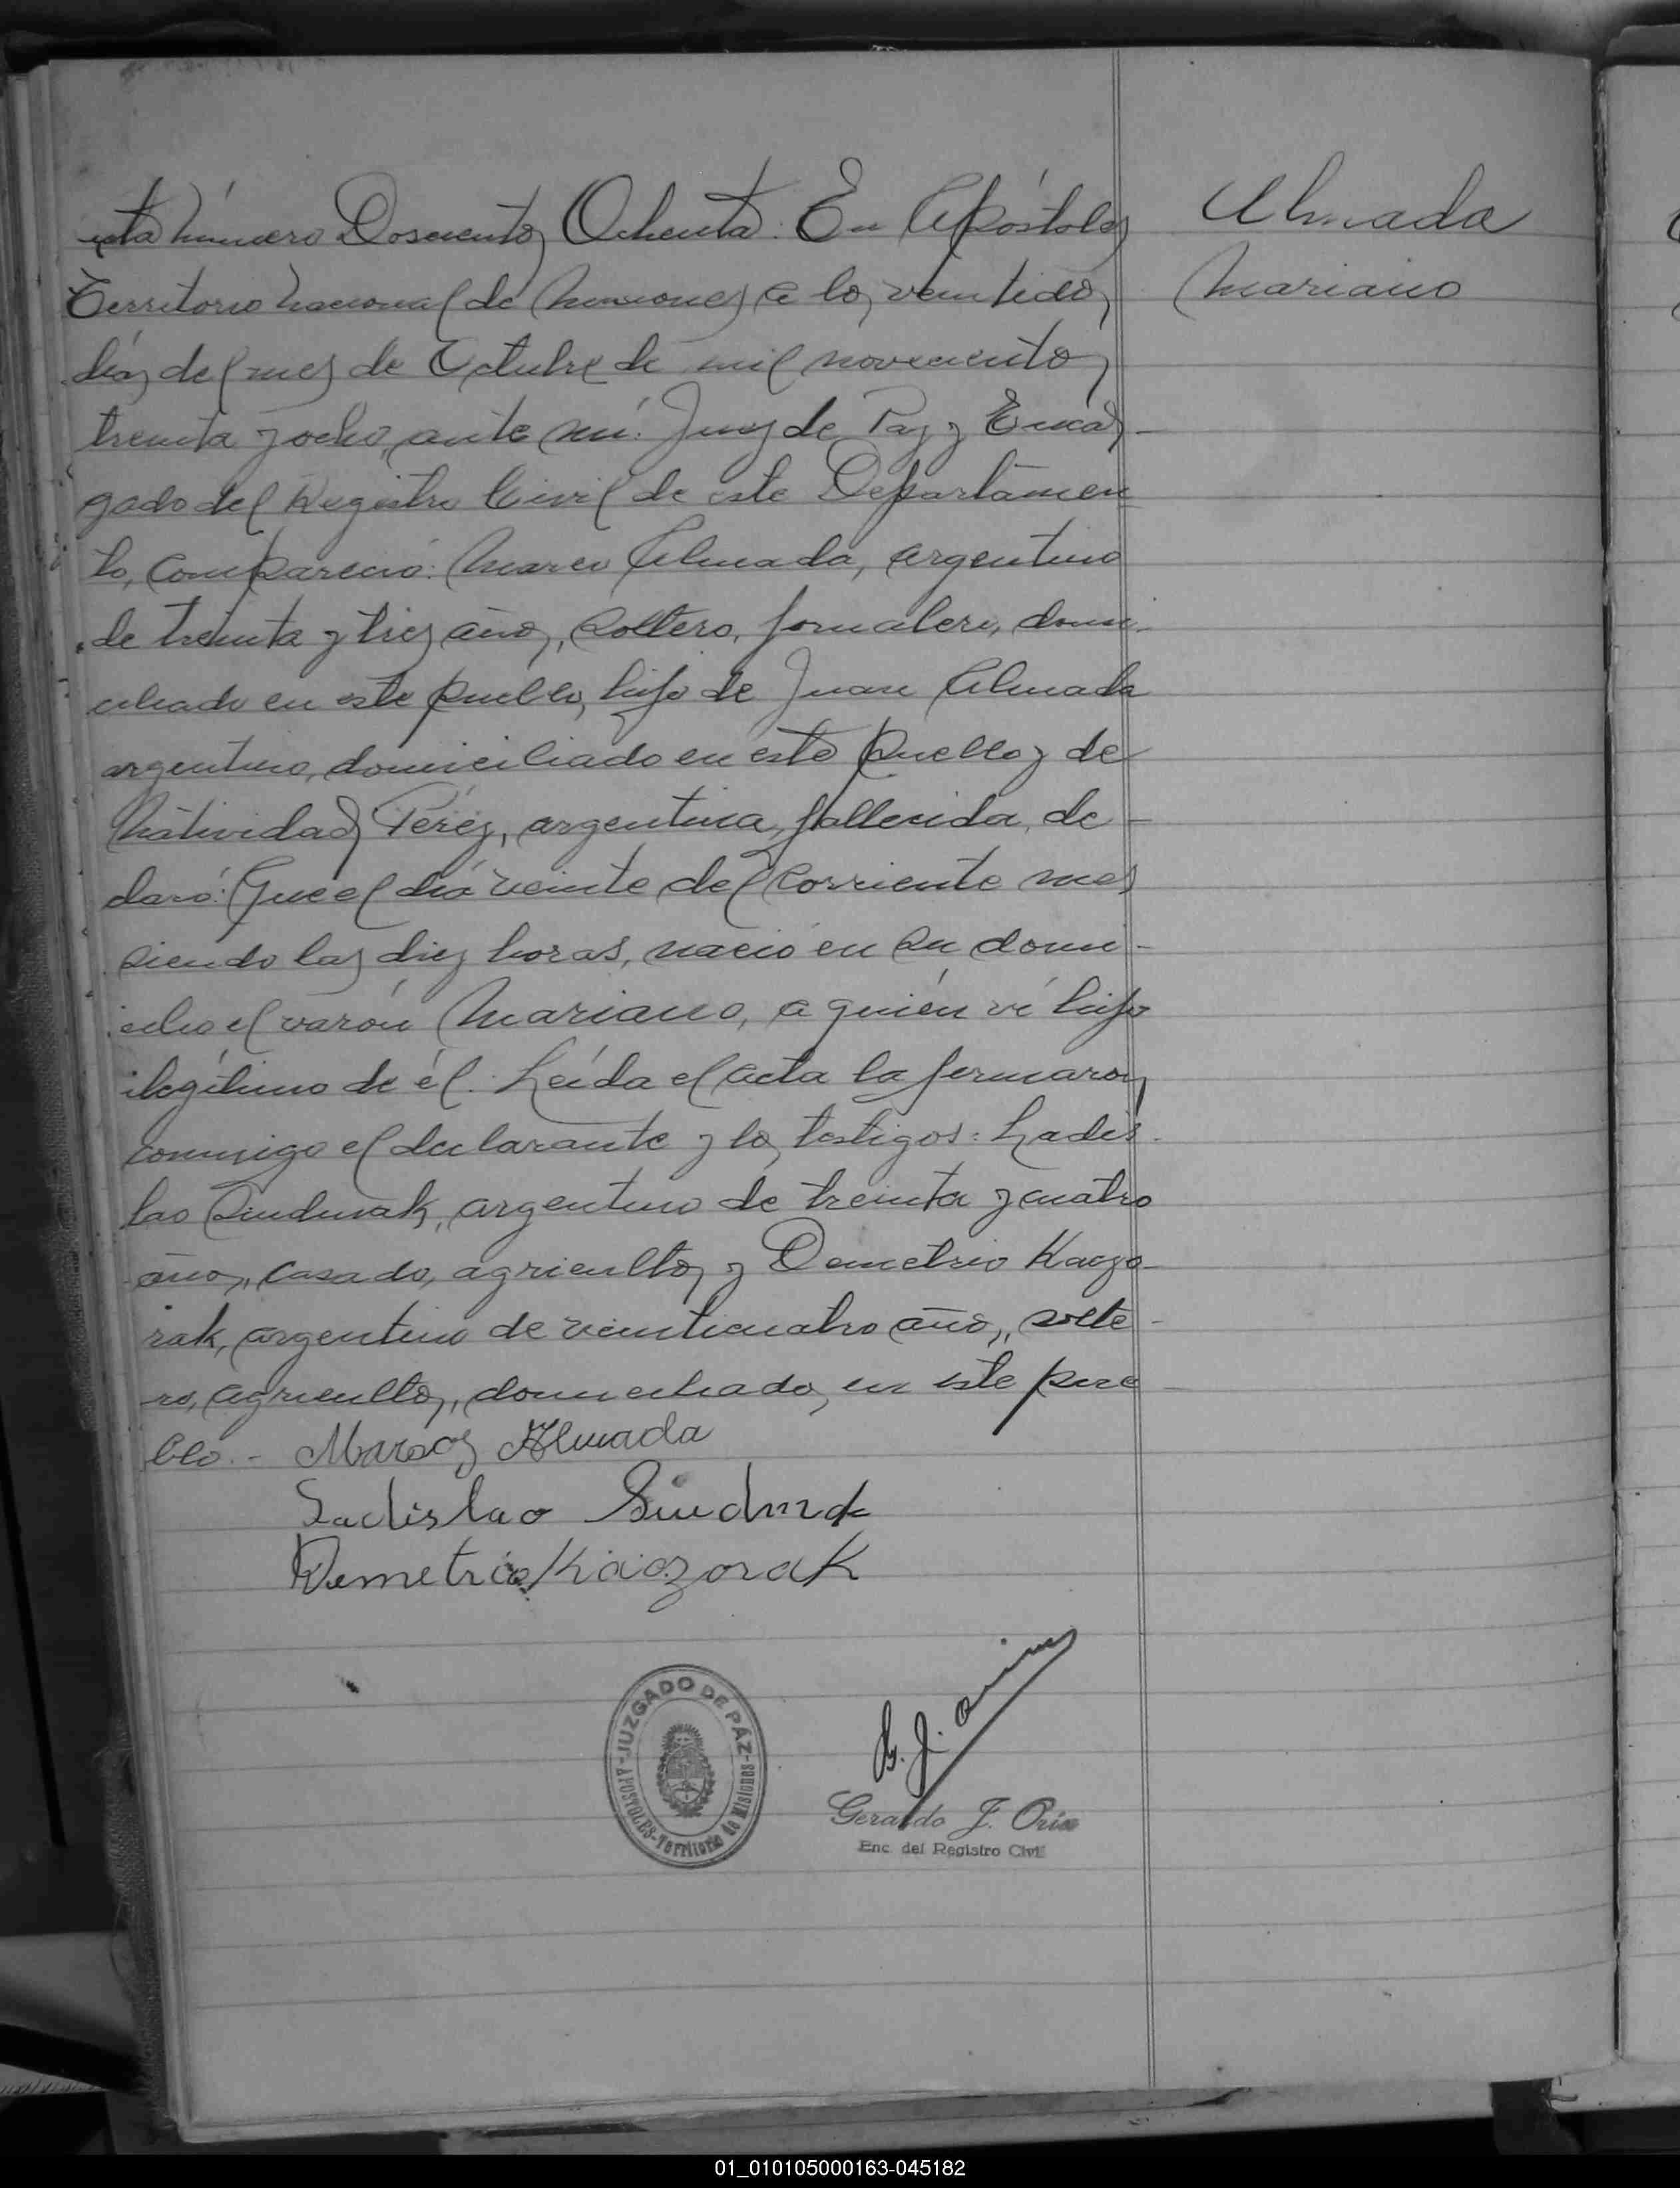 Acta número Doscientos Ochenta: En Apóstoles
Territorio Nacional de Misiones a los veintidos
días del mes de Octubre de mil novecientos
treinta y ocho, ante mí: Juez de Paz y Encar-
gado del Registro Civil de este Departamen
to, compareció: Marcos Almada, argentino
de treinta y tres años, soltero, jornalero, domi-
ciliado en este pueblo, hijo de Juan Almada
argentino, domiciliado en este pueblo y de
Natividad Peréz, argentina, fallecida, de-
claró: Que el día veinte del corriente mes
siendo las diez horas, nació en su domi-
cilio el varón Mariano, a quién ví hijo
ilegítimo de él. Leída el acta la firmaron
conmigo el declarante y los testigos: Ladis-
lao Sindmak, argentino de treinta y cuatro
años, casado, agricultor y Demetrio Kaczo-
rak, argentino de veinticuatro años, solte-
ro, agricultor, domiciliados en este pue-
blo.- Marcos Almada
Ladislao
Demetrio Kaczorak
Almada
Mariano
JUZGADO DE PÁZ
APOSTOLES-Territorio de Misiones
Geraldo J.
Enc. del Registro Civil
01_010105000163-045182